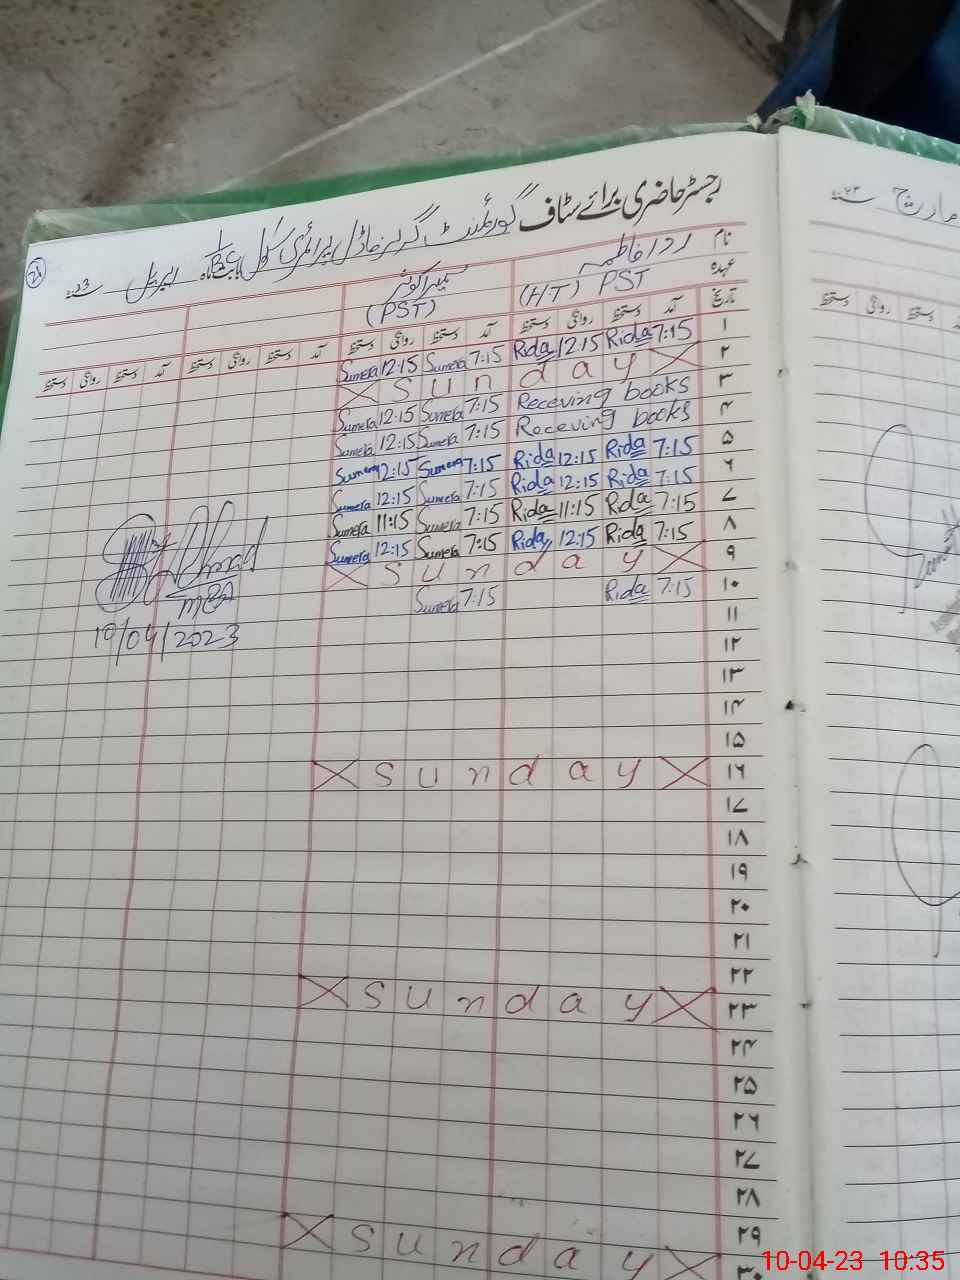 رجسٹر حاضری برائے سٹاف گورنمنٹ گرلز ماڈل پرائمری سکول بابت ماہ اپریل 23ء
نام ردا فاطمہ سمیرا کوثر
عہدہ (H.T) PST (PST)
تاریخ آمد دستخط روانگی دستخط آمد دستخط روانگی دستخط آمد دستخط روانگی دستخط آمد دستخط روانگی دستخط
۱ 7:15 Rida 12:15 Rida 7:15 Sumera 12:15 Sumera
۲ Sunday
۳ Receving books 7:15 Sumera 12:15 Sumera
۴ Receving books 7:15 Sumera 12:15 Sumera
۵ 7:15 Rida 12:15 Rida 7:15 Sumera 12:15 Sumera
۶ 7:15 Rida 12:15 Rida 7:15 Sumera 12:15 Sumera
۷ 7:15 Rida 11:15 Rida 7:15 Sumera 11:15 Sumera
۸ 7:15 Rida 12:15 Rida 7:15 Sumera 12:15 Sumera
۹ Sunday
۱۰ 7:15 Rida 7:15 Sumera
10/04/2023
۱۱
۱۲
۱۳
۱۴
۱۵
۱۶ Sunday
۱۷
۱۸
۱۹
۲۰
۲۱
۲۲
۲۳ Sunday
۲۴
۲۵
۲۶
۲۷
۲۸
۲۹
۳۰ Sunday
مارچ ۲۳ء
دستخط روانگی دستخط
10-04-23 10:35